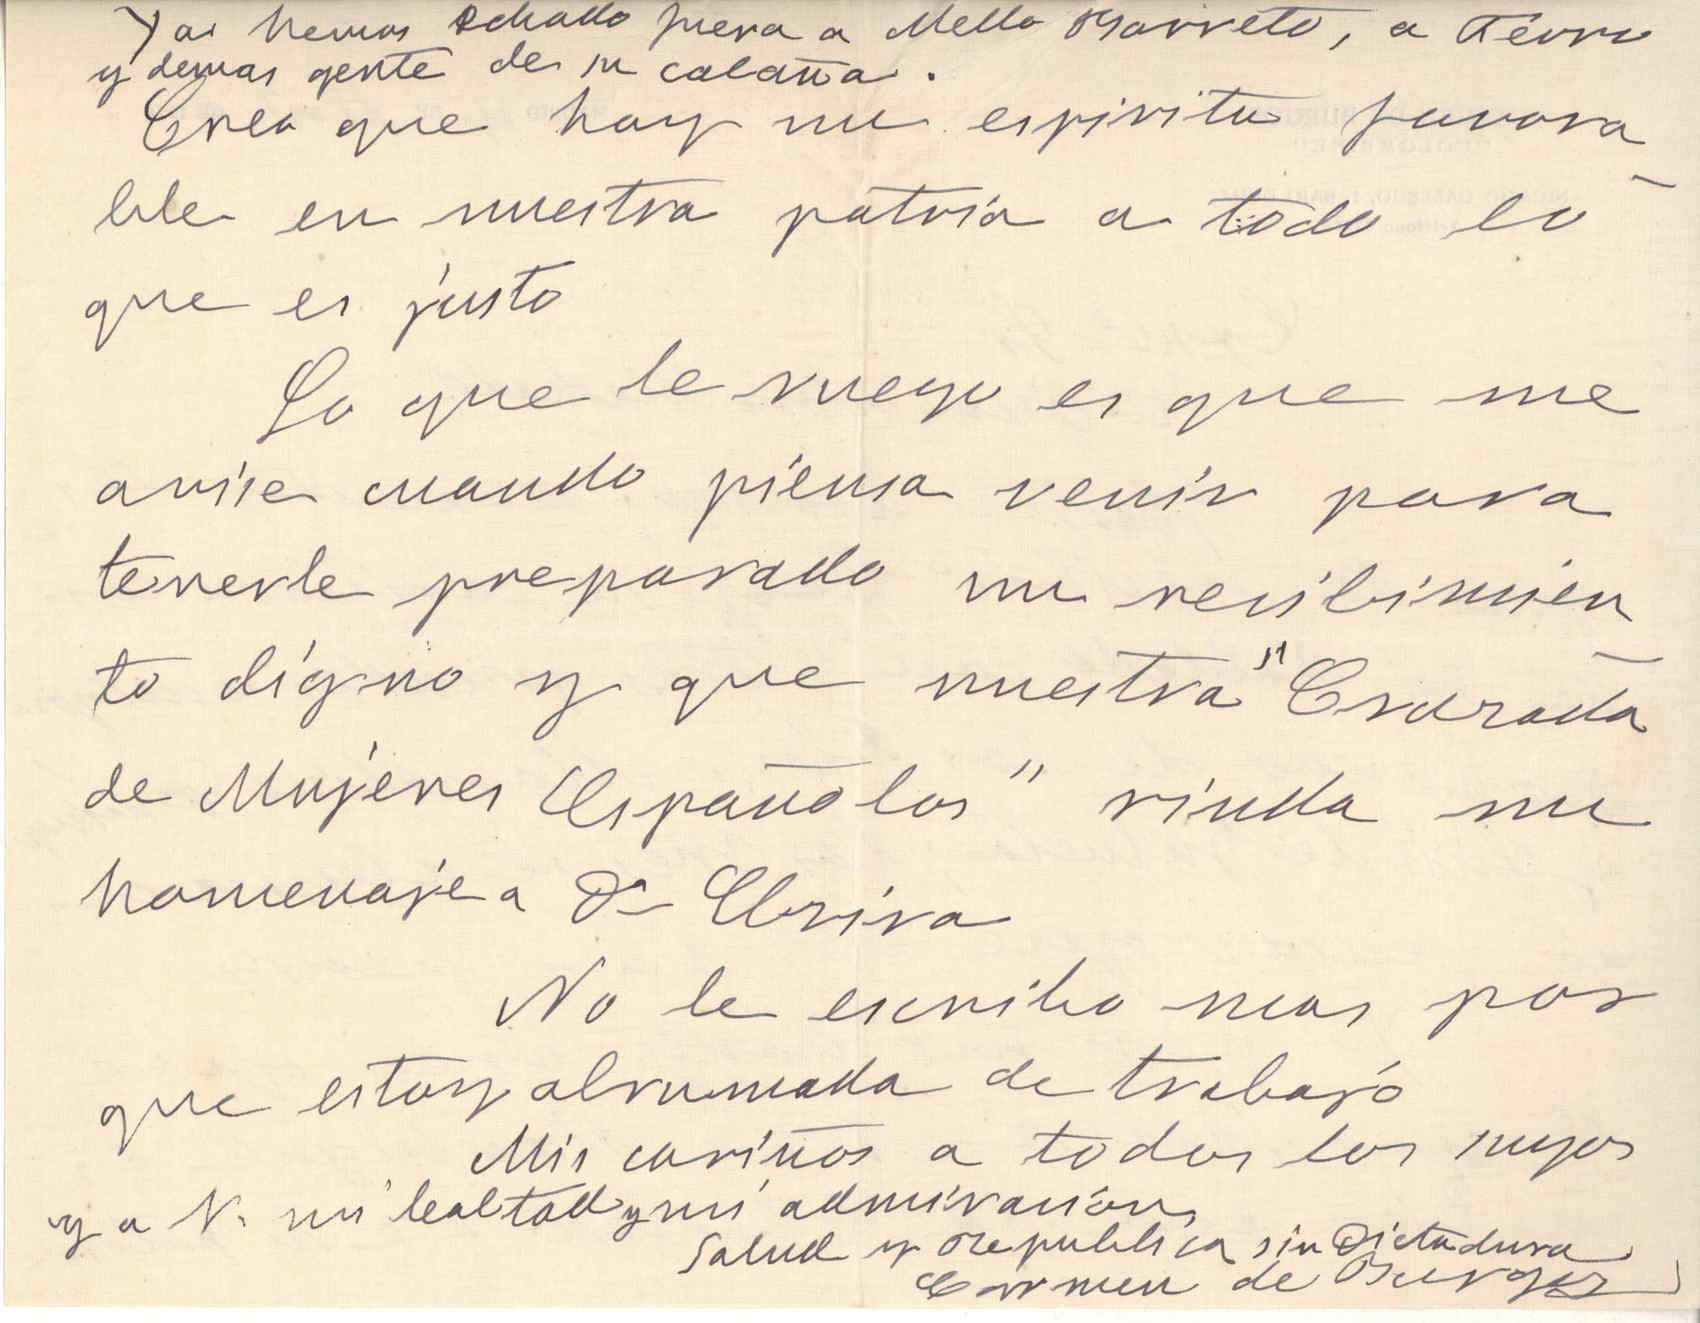 Ya hemos echado fuera a Mello Barreto, a Ferro
y demas gente de su calaña.
Crea que hay un espiritu favora
ble en nuestra patria a todo lo
que es justo
Lo que le ruego es que me
avise cuando piensa venir para
tenerle preparado un recibimien
to digno y que nuestra "Cruzada
de Mujeres Españolas" rinda un
homenaje a Dª Elvira
No le escribo mas por
que estoy abrumada de trabajo
Mis cariños a todos los suyos
y a V. mi lealtad y mi admiración,
Salud y Republica sin Dictadura
Carmen de Burgos